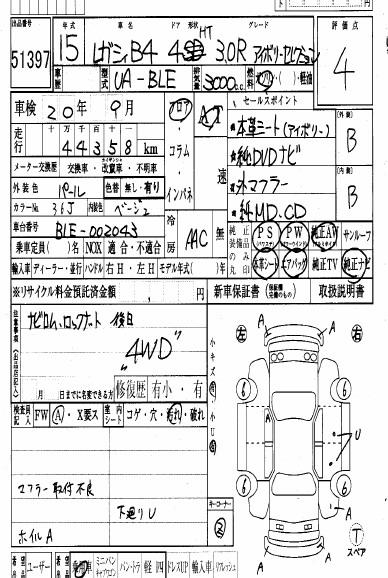 出品番号 年式 車名 ドア 形状 グレード 評価点
51397 15 レガシィB4 4 HT 3.0R アイボリーセレクション 4
車歴 型式 UA-BLE 排気量 3000cc ・( )・軽油
車検 20年 9月 フロア AT セールスポイント
走行 十万 万 千 百 十 一
44358 km コラム 本革シート(アイボリー) 外装 B
メーター交換歴 交換車・改竄車・不明車 純DVDナビ
外装色 パール 色替 無し・有り インパネ 速 外マフラー 内装 B
カラーNo. 36J 内装色 ベージュ 純MD.CD
車台番号 BLE-002043 冷房 AAC 無 純正装備品のみ○印 PS PW 純正AW サンルーフ
乗車定員( )名 NOX 適合・不適合 本革シート エアバッグ 純正TV 純正ナビ
輸入車 ディーラー・並行 ハンドル 右H・左H モデル年式( )年
※リサイクル料金預託済金額 , 円 新車保証書 取扱説明書
注意事項(出品店記入) ナビロム、ロックナット 後日
"4WD"
月 日までに名変できる方 修復歴 有小・有
検査員記入 FW A・X要ス 室内シート コゲ・穴・汚れ・破れ
マフラー 取付不良
下廻りU
ホイルA
キーコーナー ②
小キズ 小U
左 右
A A
6 6
A A
U
6 6
A A
T
スペア
ユーザー 乗用車 ミニバンキャブワゴン バン・トラ 軽四 ドレスUP 輸入車 リフレッシュ